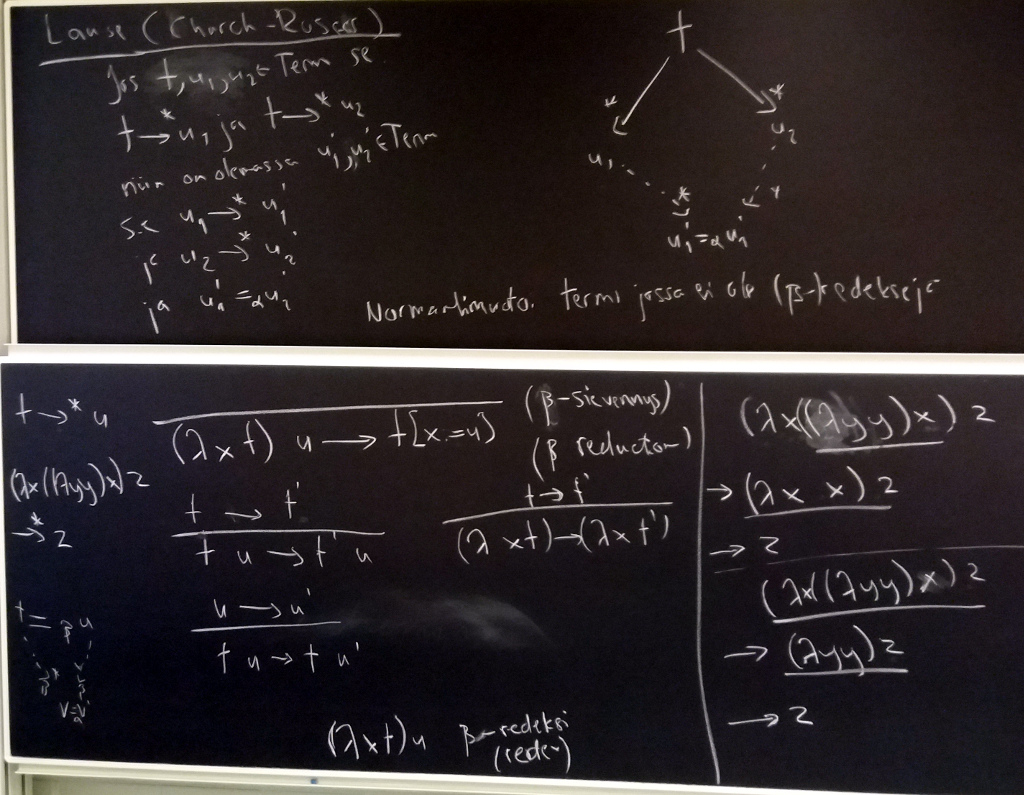 Lause (Church-Rosser)
Jos t, u₁, u₂ ∈ Term s.e
t →* u₁ ja t →* u₂
niin on olemassa u₁', u₂' ∈ Term
s.e u₁ →* u₁'
ja u₂ →* u₂'
ja u₁' =α u₂'
t
* *
u₁ u₂
* *
u₁' =α u₁'
Normaalimuoto. termi jossa ei ole (β-)redeksejä
t →* u
(λx((λyy)x)2
→* 2
t =β u
(λxt) u → t[x:=u]
(β-sievennys)
(β reduction)
t → t'
t u → t' u
t → t'
(λxt) → (λxt')
u → u'
t u → t u'
(λxt)u β-redeksi
(redex)
(λx((λyy)x) 2
→ (λx x) 2
→ 2
(λx((λyy)x) 2
→ (λyy)2
→ 2